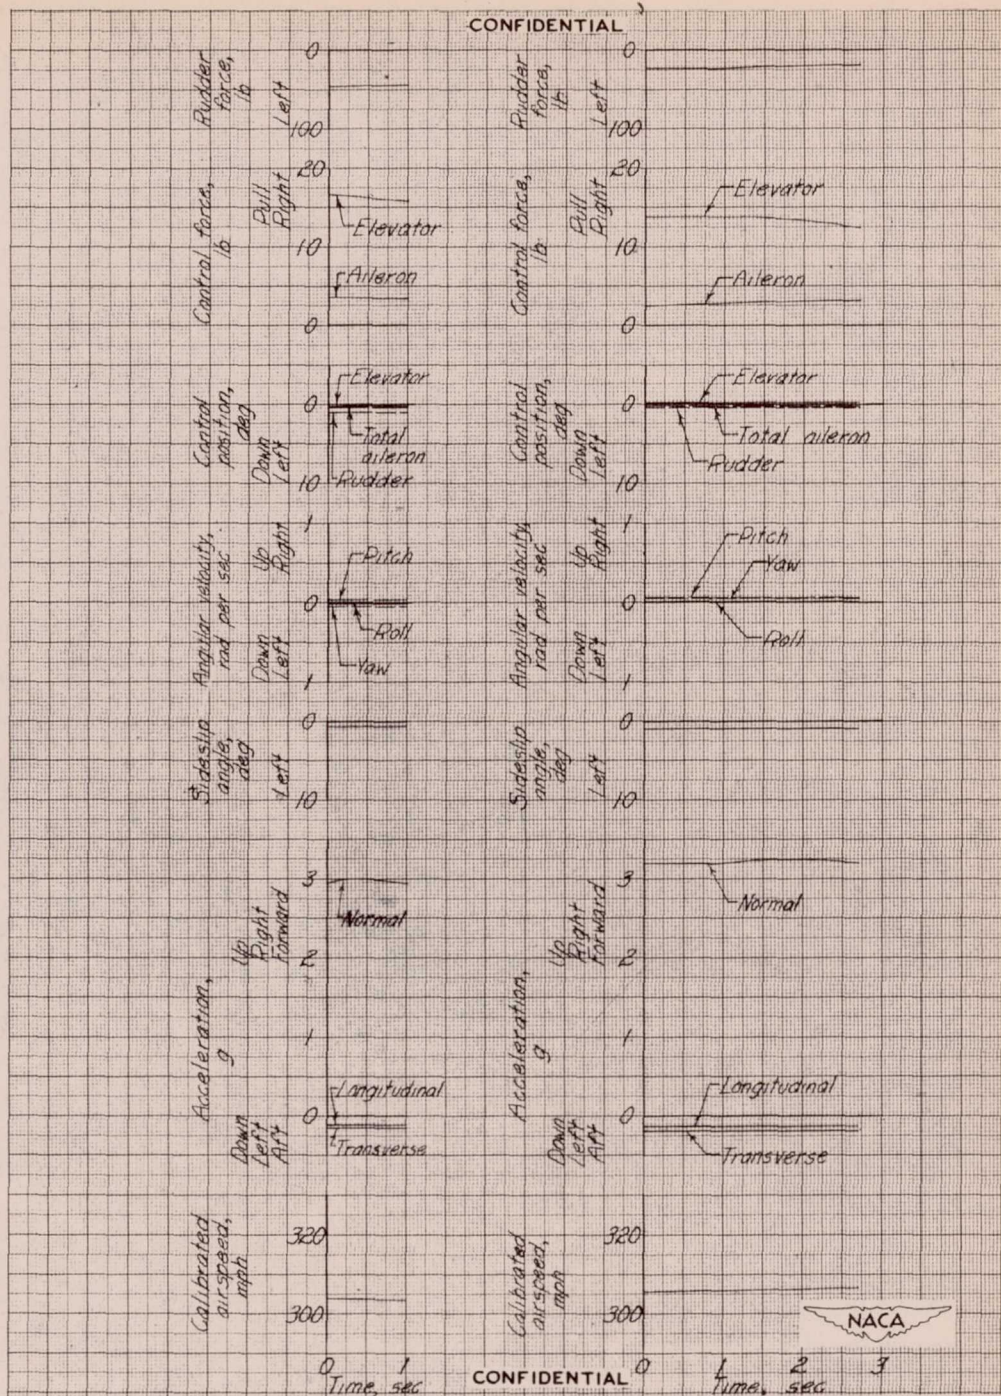 CONFIDENTIAL
Rudder
force,
lb
Left
0
100
Control force,
lb
Pull
Right
20
10
0
Elevator
Aileron
Control
position,
deg
Down
Left
0
10
Elevator
Total
aileron
Rudder
Angular velocity,
rad per sec
Up
Right
Down
Left
1
0
1
Pitch
Roll
Yaw
Sideslip
angle,
deg
Left
0
10
Acceleration,
g
Up
Right
Forward
Down
Left
Aft
3
2
1
0
Normal
Longitudinal
Transverse
Calibrated
airspeed,
mph
320
300
0 1
Time, sec
Rudder
force,
lb
Left
0
100
Control force,
lb
Pull
Right
20
10
0
Elevator
Aileron
Control
position,
deg
Down
Left
0
10
Elevator
Total aileron
Rudder
Angular velocity,
rad per sec
Up
Right
Down
Left
1
0
1
Pitch
Yaw
Roll
Sideslip
angle,
deg
Left
0
10
Acceleration,
g
Up
Right
Forward
Down
Left
Aft
3
2
1
0
Normal
Longitudinal
Transverse
Calibrated
airspeed,
mph
320
300
NACA
0 1 2 3
Time, sec
CONFIDENTIAL